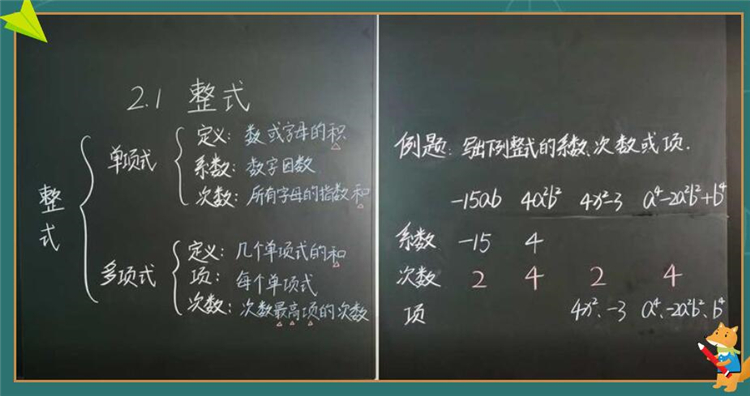 2.1 整式
整式
单项式
定义：数或字母的积
系数：数字因数
次数：所有字母的指数和
多项式
定义：几个单项式的和
项：每个单项式
次数：次数最高项的次数
例题：写出下列整式的系数、次数或项.
-15ab 4a²b² 4x²-3 a⁴-2a²b²+b⁴
系数 -15 4
次数 2 4 2 4
项 4x²、-3 a⁴、-2a²b²、b⁴